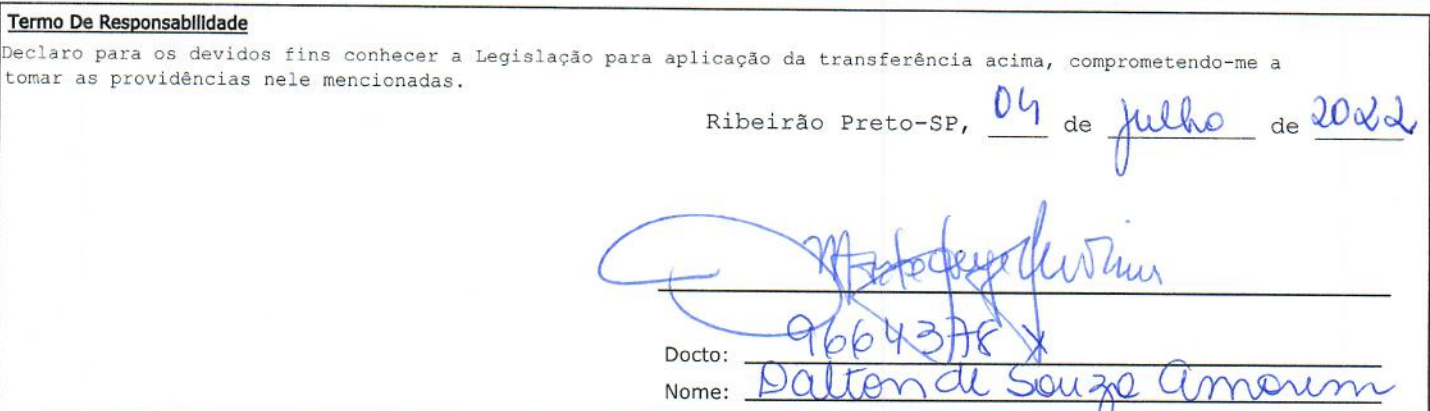 Termo De Responsabilidade
Declaro para os devidos fins conhecer a Legislação para aplicação da transferência acima, comprometendo-me a
tomar as providências nele mencionadas.
Ribeirão Preto-SP, 04 de julho de 2022
Docto: 9664378 X
Nome: Dalton de Souza Amorim